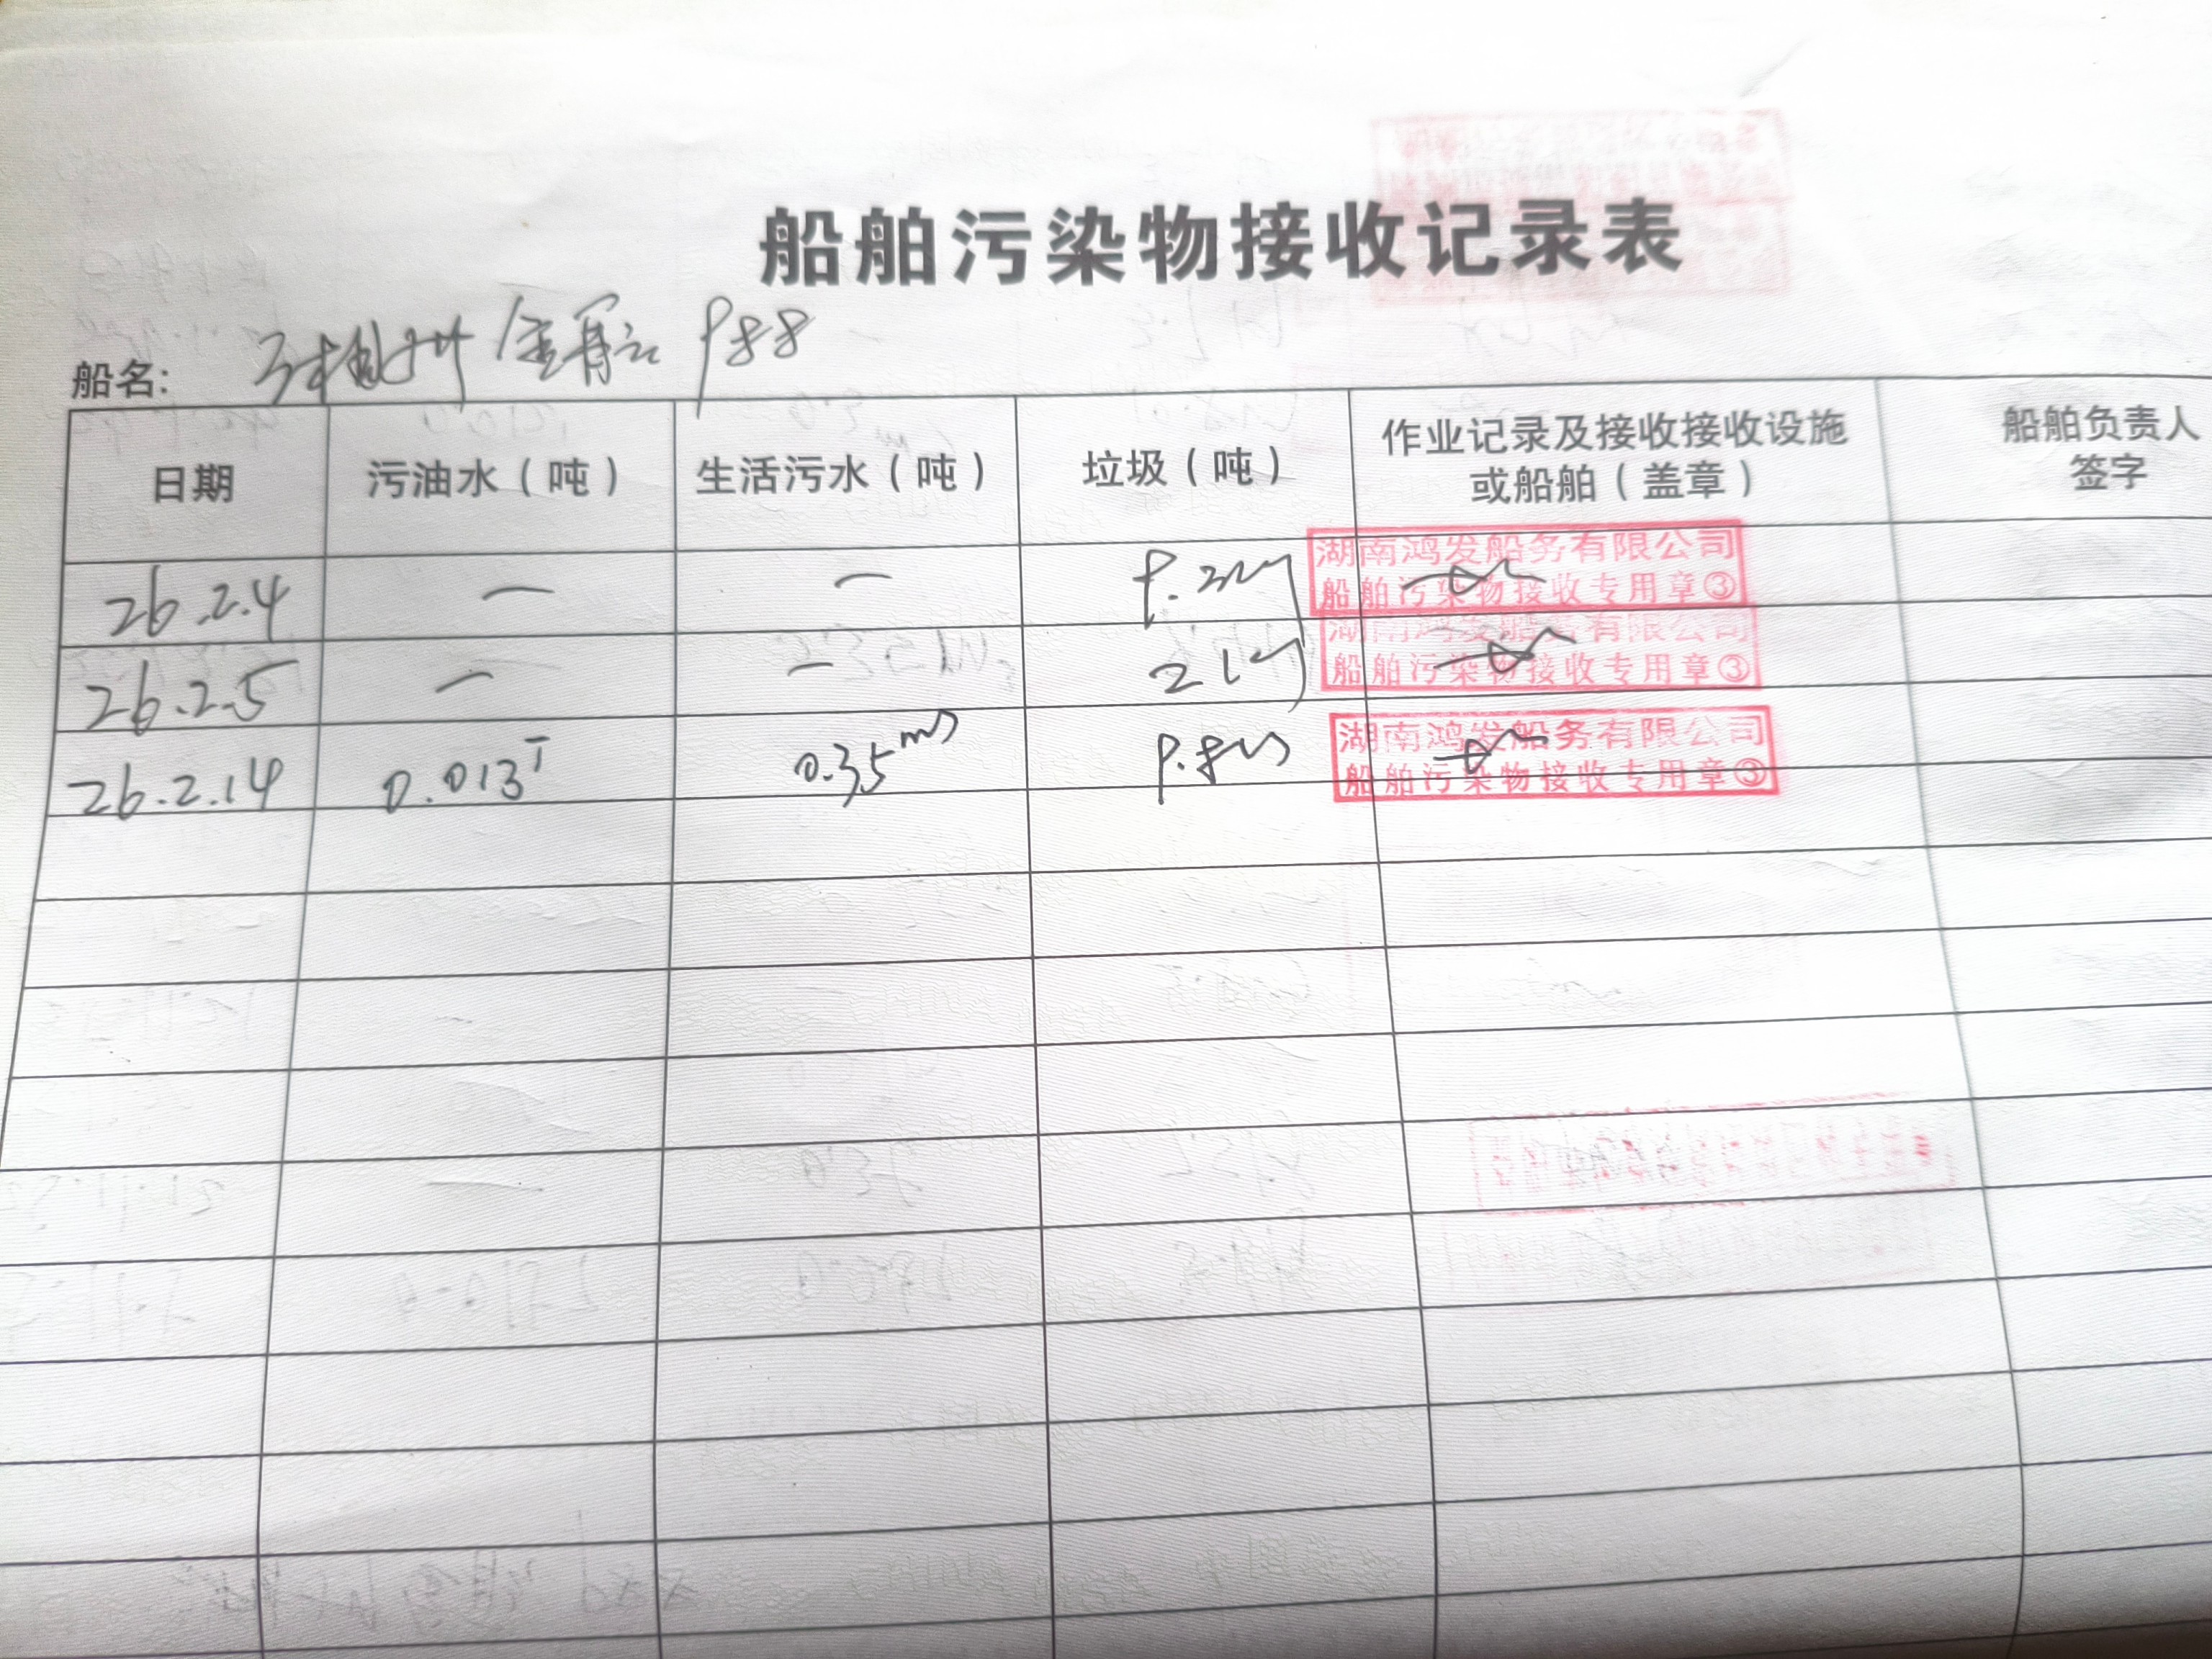 船舶污染物接收记录表
船名:
日期 污油水（吨） 生活污水（吨） 垃圾（吨） 作业记录及接收接收设施或船舶（盖章） 船舶负责人签字
26.2.4 — —
湖南鸿发船务有限公司
船舶污染物接收专用章③
26.2.5 — —
湖南鸿发船务有限公司
船舶污染物接收专用章③
26.2.14 0.013T 0.35m³
湖南鸿发船务有限公司
船舶污染物接收专用章③